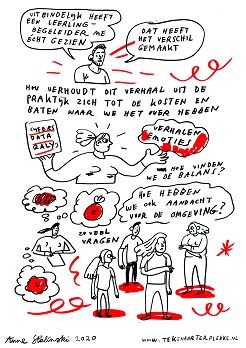 UITEINDELIJK HEEFT
EEN LEERLING-
BEGELEIDER ME
ECHT GEZIEN
DAT HEEFT
HET VERSCHIL
GEMAAKT
HOE VERHOUDT DIT VERHAAL UIT DE
PRAKTIJK ZICH TOT DE KOSTEN EN
BATEN WAAR WE HET OVER HEBBEN
CIJFERS
DATA
QALYS
VERHALEN
EMOTIES
HOE VINDEN
WE DE BALANS?
HOE HEBBEN
WE OOK AANDACHT
VOOR DE OMGEVING?
ZOVEEL
VRAGEN
Anne Stalinski 2020
WWW.TEKENAARTERPLEKKE.NL